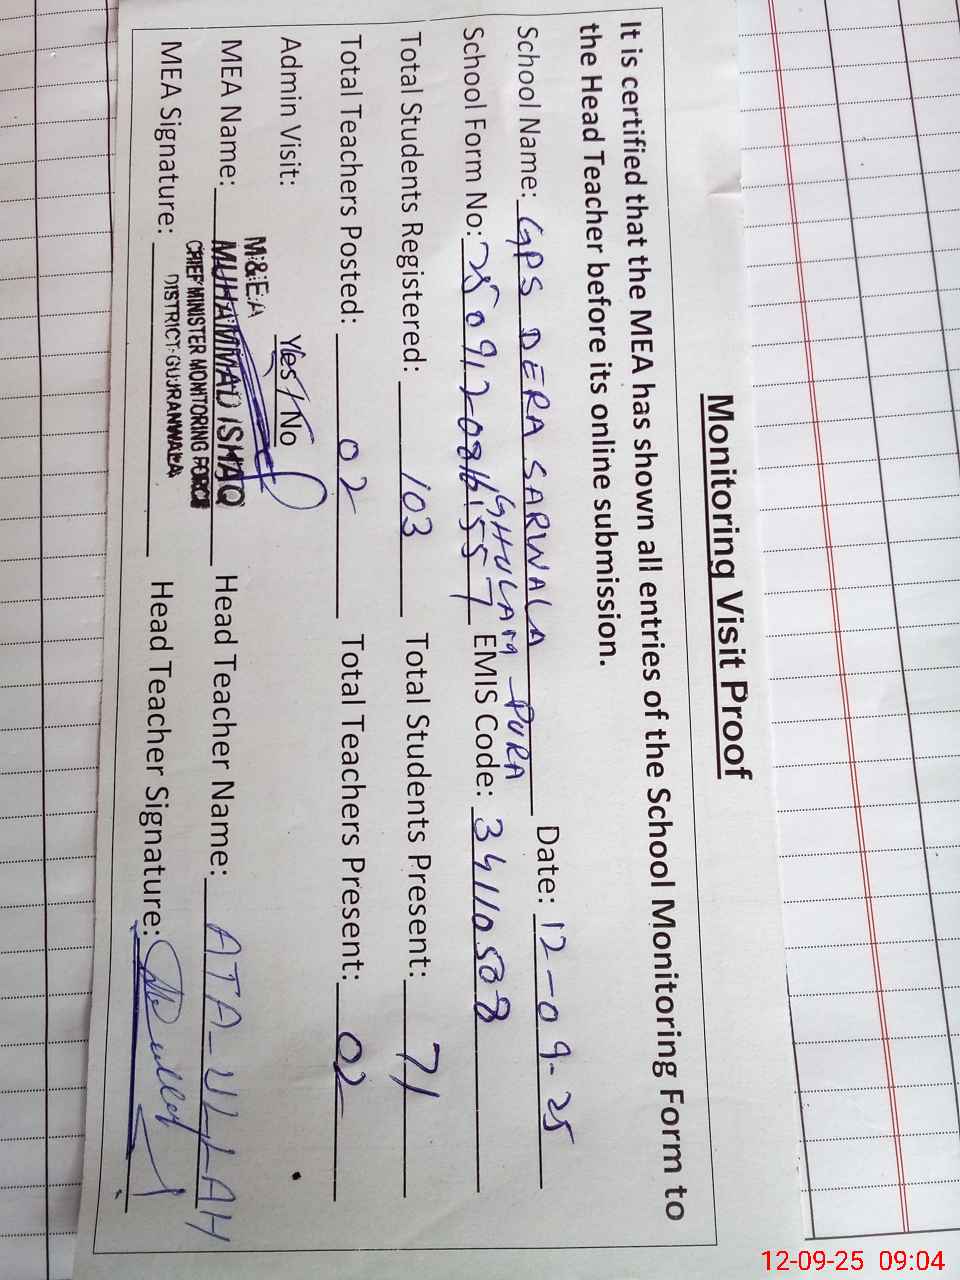 Monitoring Visit Proof
It is certified that the MEA has shown all entries of the School Monitoring Form to
the Head Teacher before its online submission.
School Name: GPS DERA SARWALA Date: 12-09-25
GHULAM PURA
School Form No: EMIS Code: 34110508
Total Students Registered: 103 Total Students Present: 71
Total Teachers Posted: 02 Total Teachers Present: 02
Admin Visit: Yes / No
M&EA
MEA Name: MUHAMMAD ISHAQ Head Teacher Name: ATA-ULLAH
CHIEF MINISTER MONITORING FORCE
MEA Signature: DISTRICT GUJRANWALA Head Teacher Signature:
12-09-25 09:04